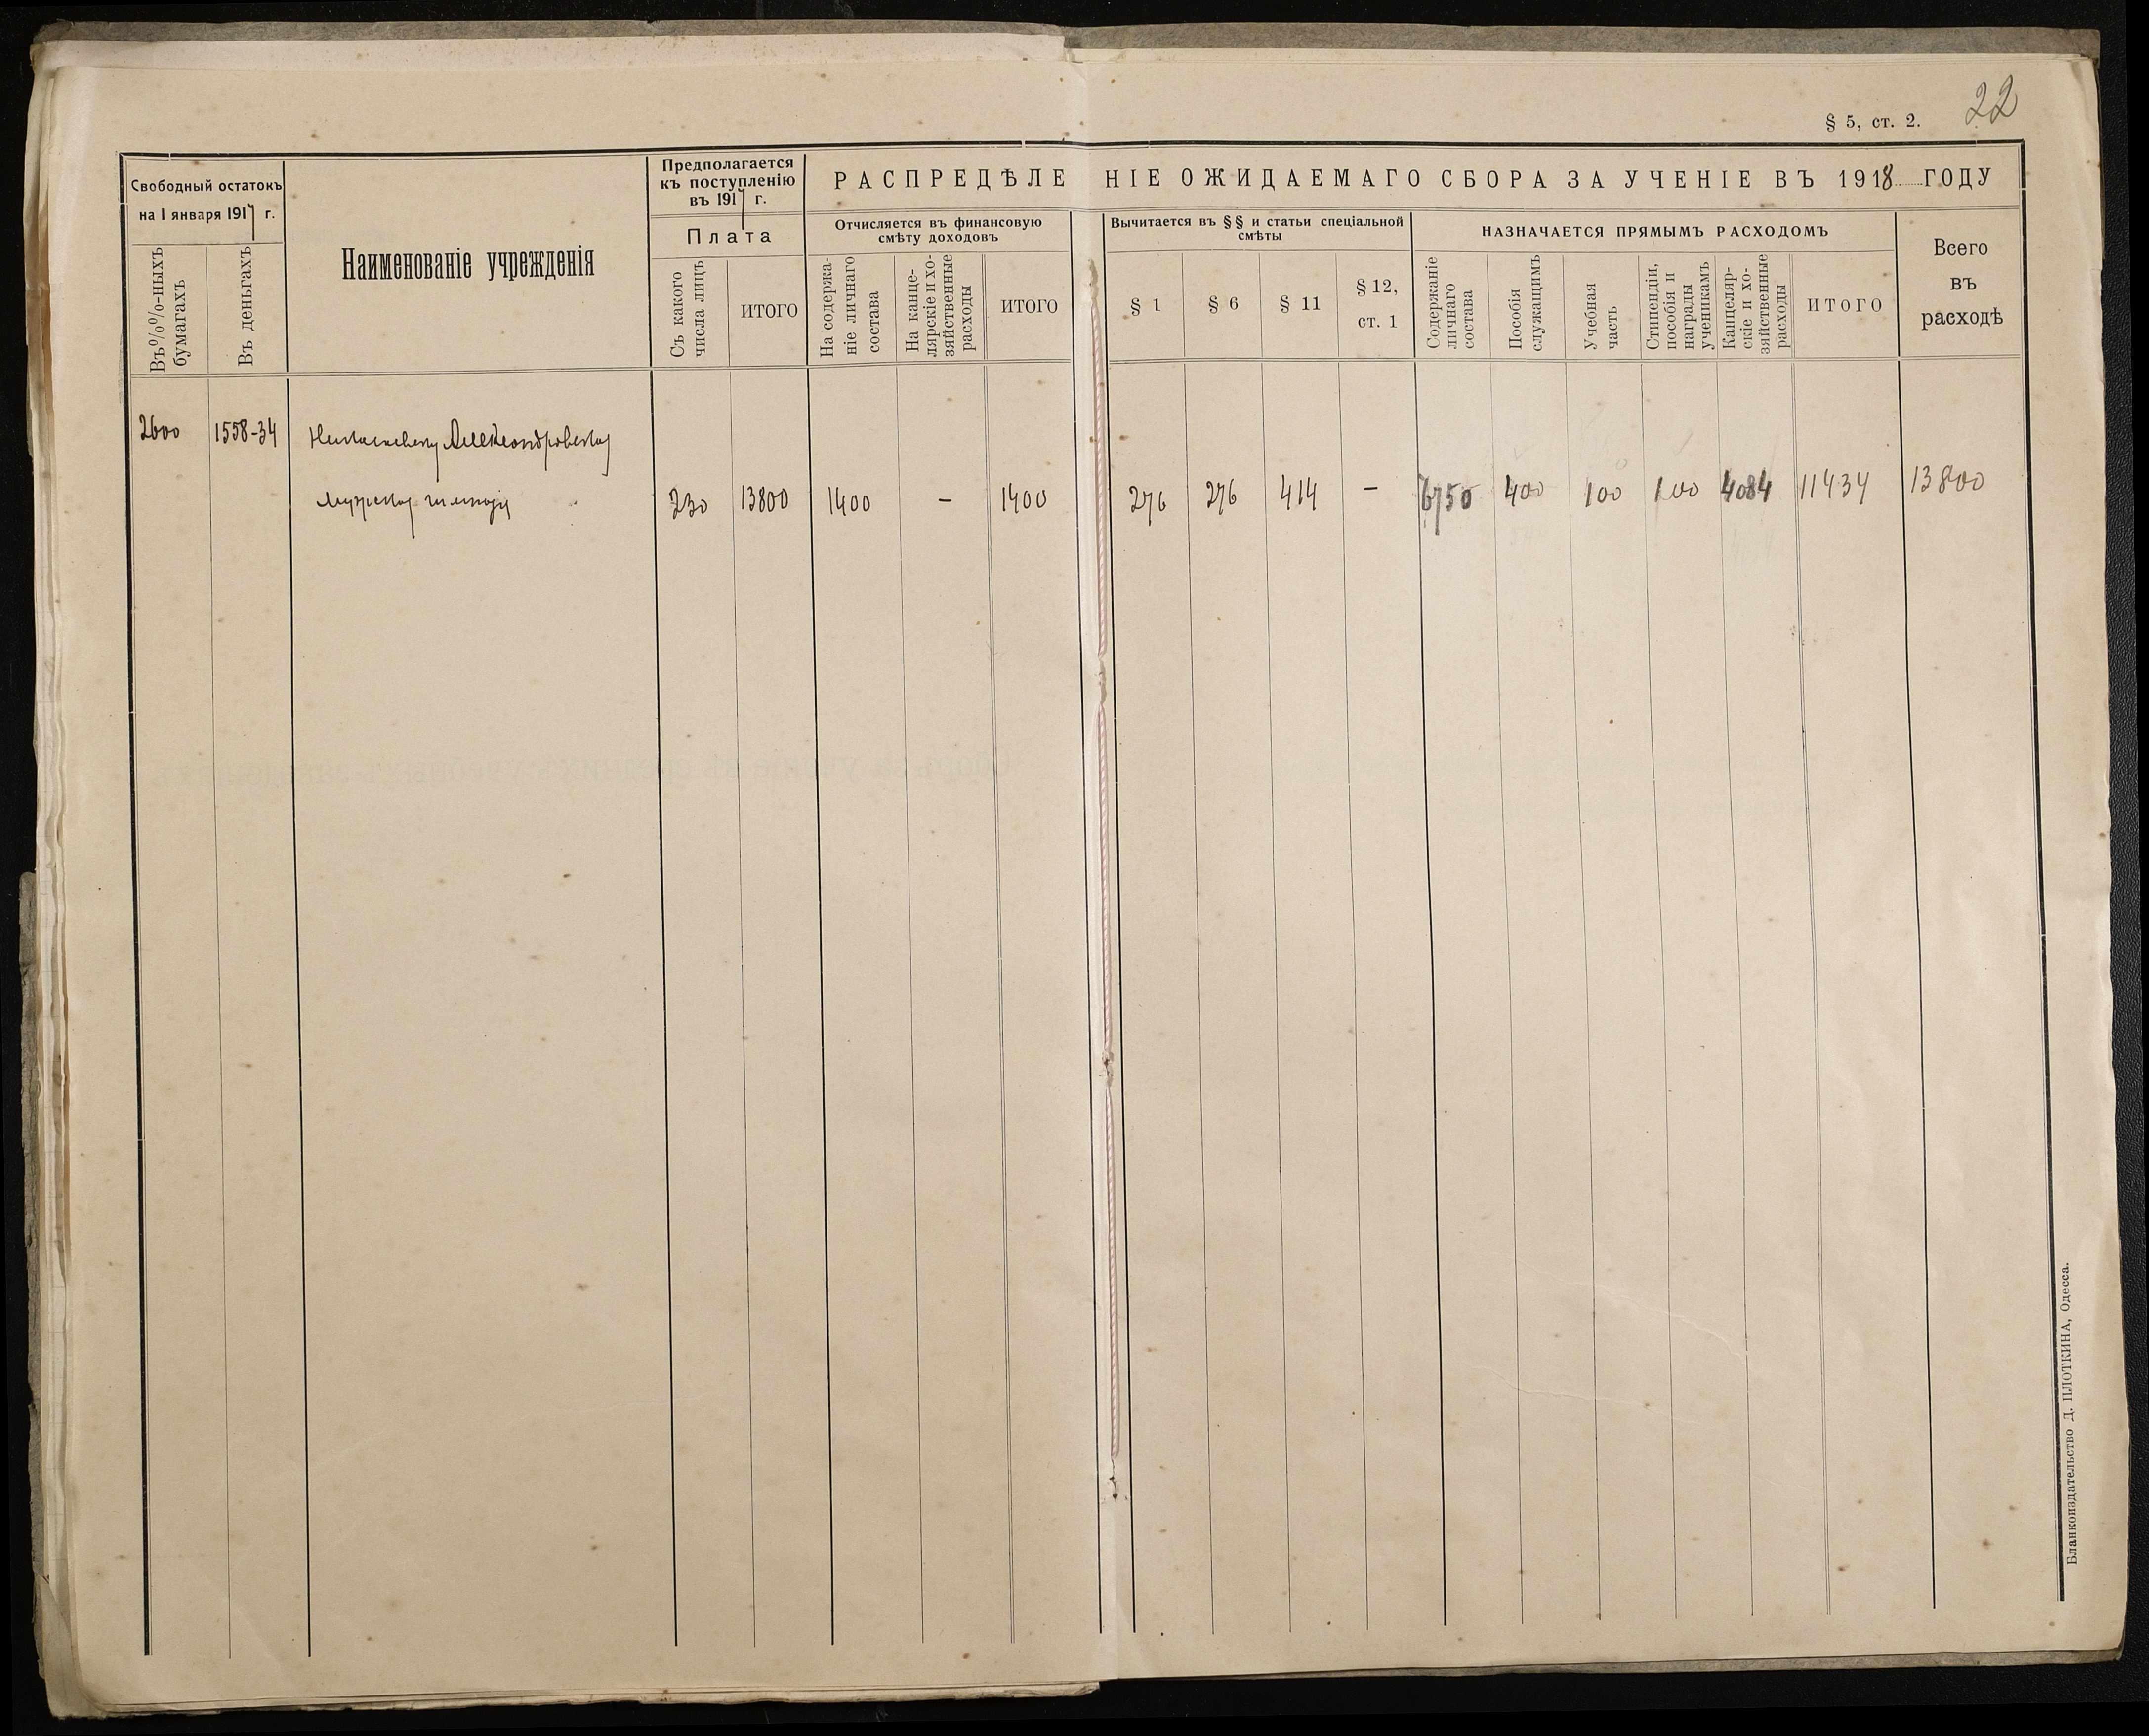 22
§ 5, ст. 2.
Свободный остатокъ
на 1 января 1917 г.
Въ %%-ныхъ
бумагахъ
Въ деньгахъ
Наименованіе учрежденія
Предполагается
къ поступленію
въ 1917 г.
Плата
Съ какого
числа лицъ
ИТОГО
РАСПРЕДѢЛЕНІЕ ОЖИДАЕМАГО СБОРА ЗА УЧЕНІЕ ВЪ 1918 ГОДУ
Отчисляется въ финансовую
смѣту доходовъ
На содержа-
ніе личнаго
состава
На канце-
лярскіе и хо-
зяйственные
расходы
ИТОГО
Вычитается въ §§ и статьи спеціальной
смѣты
§ 1
§ 6
§ 11
§ 12,
ст. 1
НАЗНАЧАЕТСЯ ПРЯМЫМЪ РАСХОДОМЪ
Содержаніе
личнаго
состава
Пособія
служащимъ
Учебная
часть
Стипендіи,
пособія и
награды
ученикамъ
Канцеляр-
скіе и хо-
зяйственные
расходы
ИТОГО
Всего
въ
расходѣ
2600 1558-34 Александровской
мужской 230 13800 1400 – 1400 276 276 414 – 6750 400 100 100 4084 11434 13800
Бланкоиздательство Д. ПЛОТКИНА, Одесса.